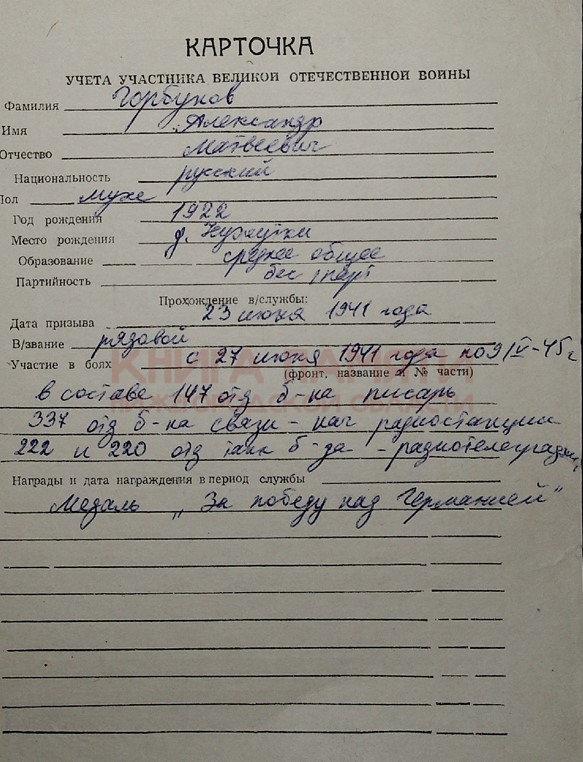 КАРТОЧКА
УЧЕТА УЧАСТНИКА ВЕЛИКОЙ ОТЕЧЕСТВЕННОЙ ВОЙНЫ
Фамилия Горбунов
Имя Александр
Отчество Матвеевич
Национальность русский
Пол муж
Год рождения 1922
Место рождения д.
Образование среднее общее
Партийность бес парт
Прохождение в/службы:
Дата призыва 23 июня 1941 года
В/звание рядовой
Участие в боях с 27 июня 1941 года по 9/V-45 г
(фронт, название и № части)
КНИГА ПАМЯТИ
НИЖЕГОРОДСКОЙ ОБЛАСТИ
в составе 147 отд б-на писарь
337 отд б-на связи - нач радиостанции
222 и 220 отд танк б-да - радиотелеграфист
Награды и дата награждения в период службы
Медаль „За победу над Германией"